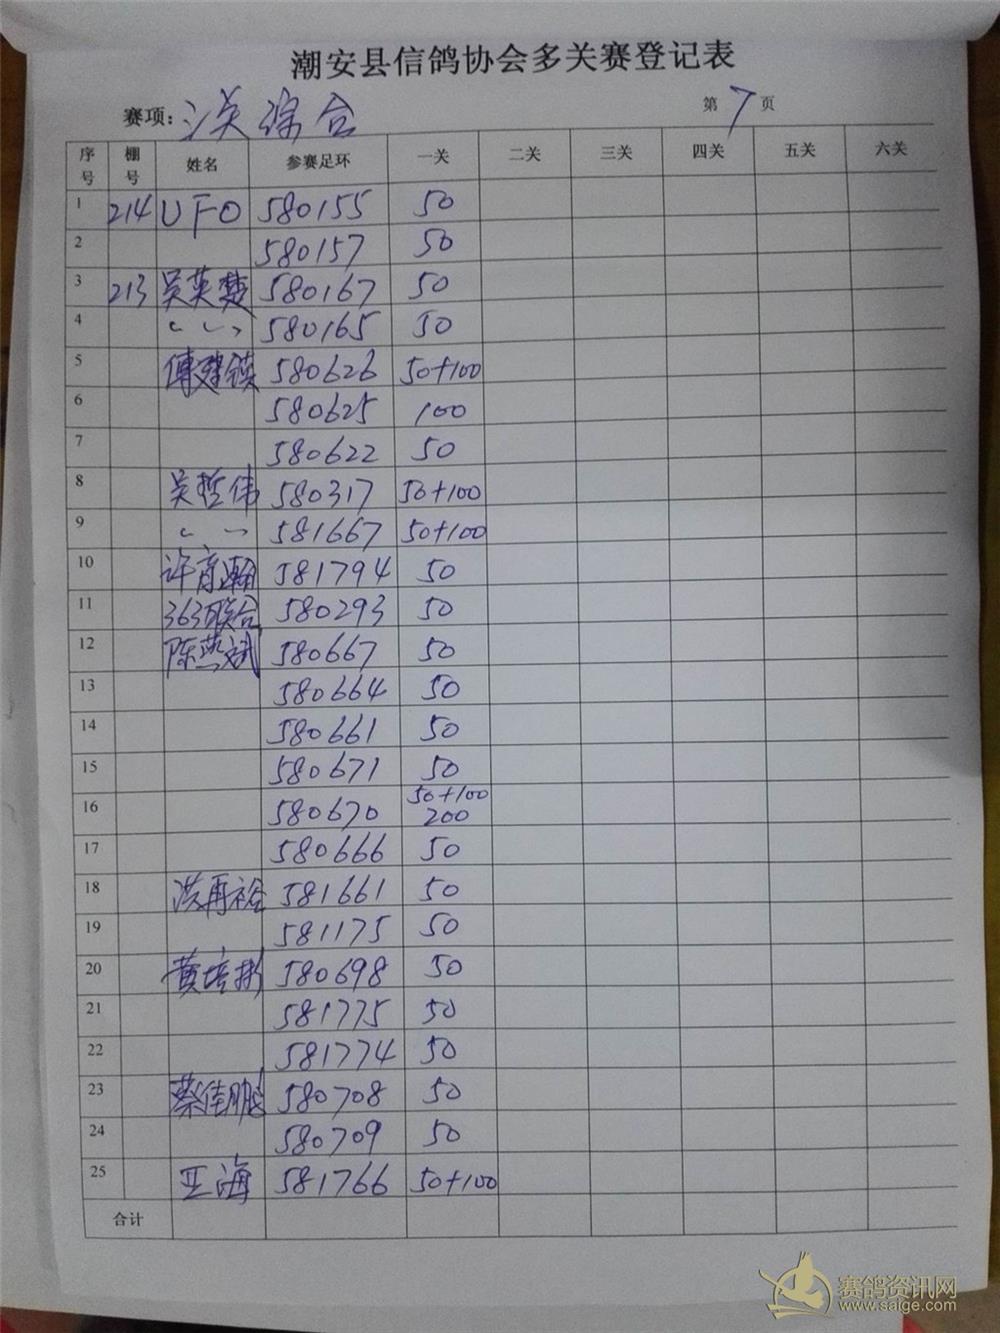 潮安县信鸽协会多关赛登记表
赛项: 三关综合 第 7 页
序号 棚号 姓名 参赛足环 一关 二关 三关 四关 五关 六关
1 214 UFO 580155 50
2 580157 50
3 213 吴英楚 580167 50
4 580165 50
5 傅建镇 580626 50+100
6 580625 100
7 580622 50
8 吴哲伟 580317 50+100
9 581667 50+100
10 许育瀚 581794 50
11 363联合 580293 50
12 陈燕斌 580667 50
13 580664 50
14 580661 50
15 580671 50
16 580670 50+100 200
17 580666 50
18 洪再裕 581661 50
19 581175 50
20 黄培彬 580698 50
21 581775 50
22 581774 50
23 蔡佳鹏 580708 50
24 580709 50
25 亚海 581766 50+100
合计
赛鸽资讯网
www.saige.com